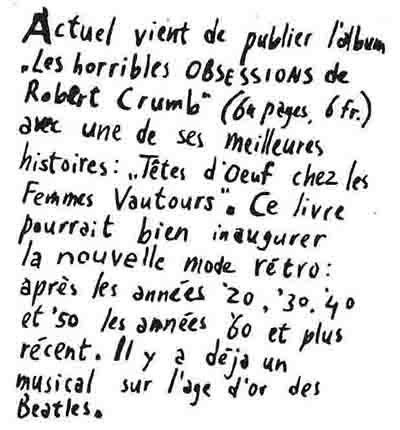 Actuel vient de publier l'album
„Les horribles OBSESSIONS de
Robert Crumb" (64 pages, 6 fr.)
avec une de ses meilleures
histoires: „Têtes d'Oeuf chez les
Femmes Vautours". Ce livre
pourrait bien inaugurer
la nouvelle mode rétro:
après les années '20, '30, '40
et '50 les années 60 et plus
récent. Il y a déja un
musical sur l'age d'or des
Beatles.